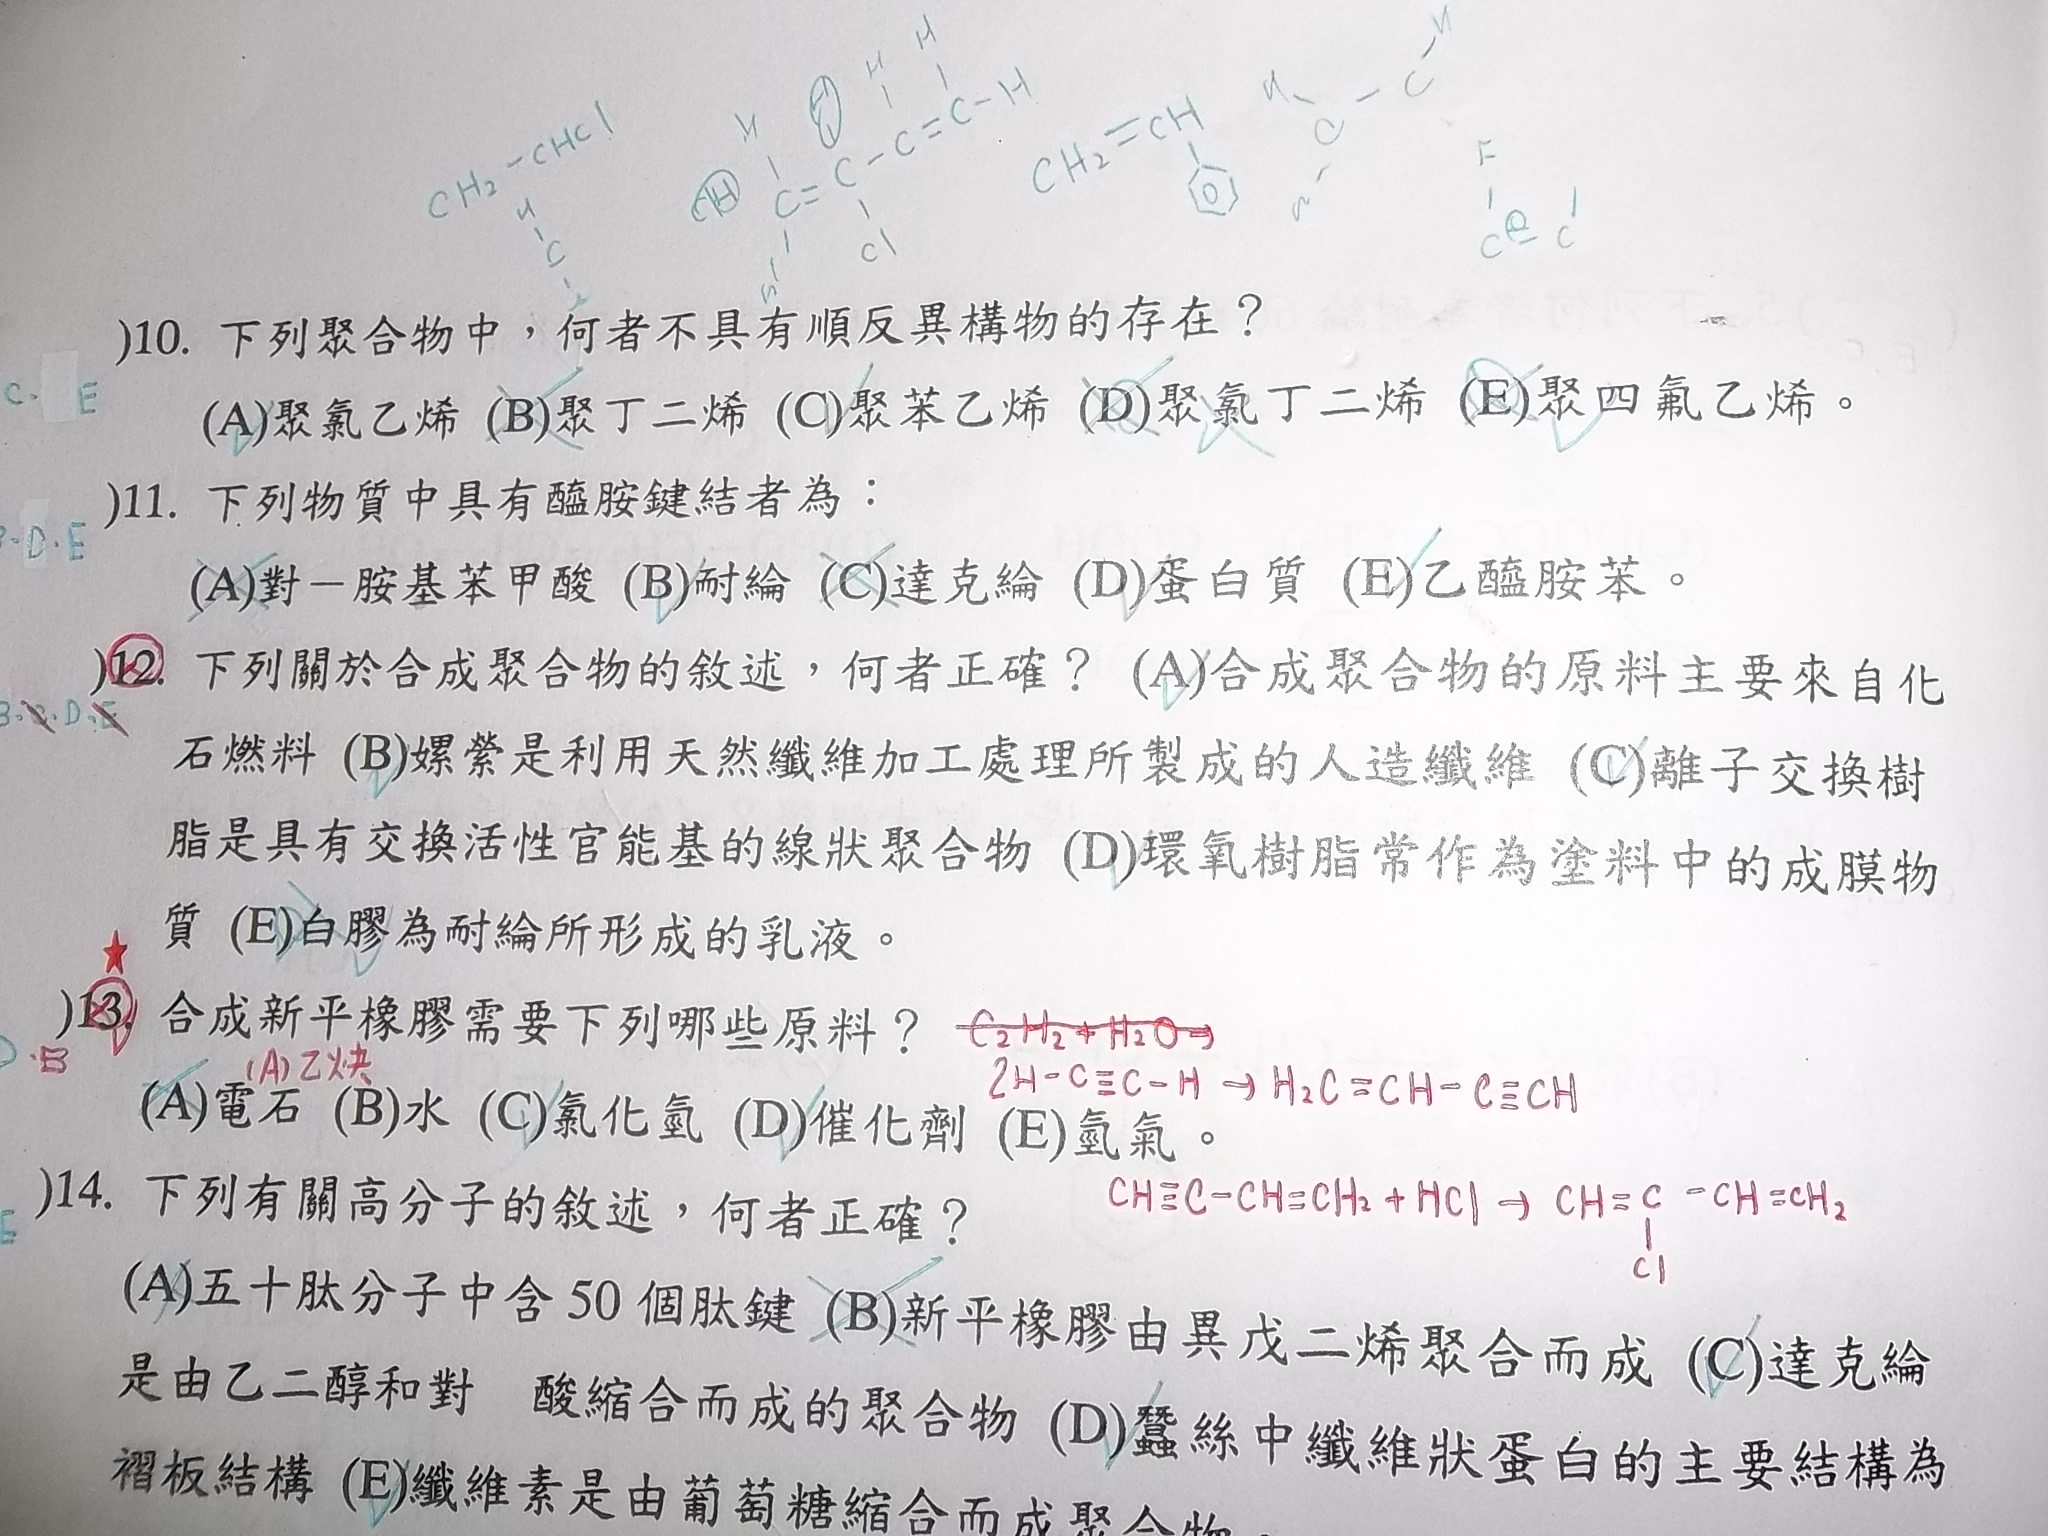 CH₂-CHCl
H
C
H H H
C=C-C=C-H
Cl
CH₂=CH
H C C H
F
C C
)10. 下列聚合物中，何者不具有順反異構物的存在？
C. E
(A)聚氯乙烯 (B)聚丁二烯 (C)聚苯乙烯 (D)聚氯丁二烯 (E)聚四氟乙烯。
)11. 下列物質中具有醯胺鍵結者為：
D.E
(A)對－胺基苯甲酸 (B)耐綸 (C)達克綸 (D)蛋白質 (E)乙醯胺苯。
)12. 下列關於合成聚合物的敘述，何者正確？ (A)合成聚合物的原料主要來自化
B.C.D.E
石燃料 (B)嫘縈是利用天然纖維加工處理所製成的人造纖維 (C)離子交換樹
脂是具有交換活性官能基的線狀聚合物 (D)環氧樹脂常作為塗料中的成膜物
質 (E)白膠為耐綸所形成的乳液。
)13. 合成新平橡膠需要下列哪些原料？ C₂H₂+H₂O→
D.B
(A)乙炔
2H-C≡C-H → H₂C=CH-C≡CH
(A)電石 (B)水 (C)氯化氫 (D)催化劑 (E)氫氣。
CH≡C-CH=CH₂+HCl → CH=C-CH=CH₂
Cl
)14. 下列有關高分子的敘述，何者正確？
E
(A)五十肽分子中含 50 個肽鍵 (B)新平橡膠由異戊二烯聚合而成 (C)達克綸
是由乙二醇和對 酸縮合而成的聚合物 (D)蠶絲中纖維狀蛋白的主要結構為
褶板結構 (E)纖維素是由葡萄糖縮合而成聚合物。